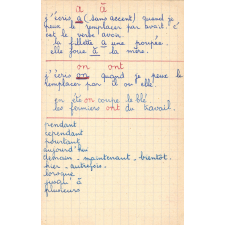 a à
j'écris a (sans accent) quand je
peux le remplacer par avait. c'
est le verbe avoir.
la fillette a une poupée.
elle joue à la mère.
on ont
j'écris on quand je peux le
remplacer par il ou elle.
en été on coupe le blé.
les fermiers ont du travail.
pendant
cependant
pourtant
aujourd'hui
demain - maintenant - bientôt.
hier - autrefois.
lorsque
jusqu'à
plusieurs